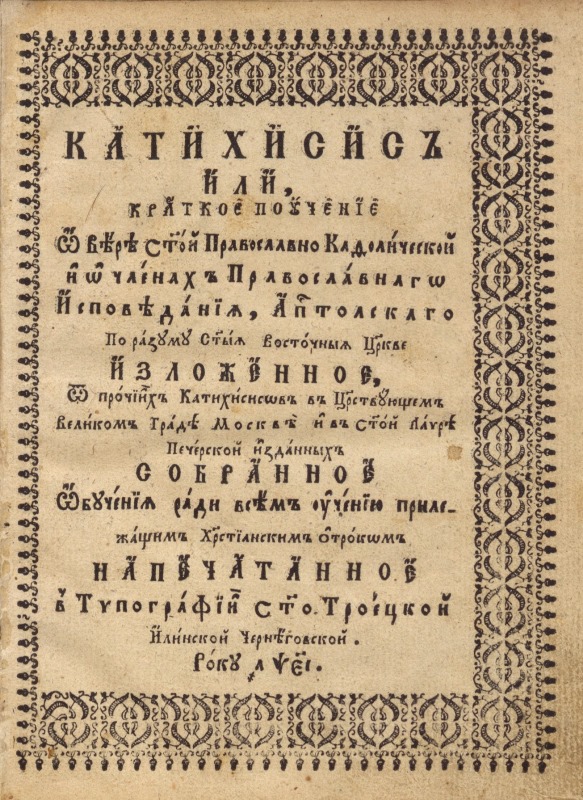 КА́ТИ́ХИ́СИ́СЪ
И́ЛИ́,
КРА́ТКОЕ ПОꙋ҆ЧЕ́НІЕ
Ѡ҆ Вѣ́рѣ Ст҃о́й Православно Каѳоли́ческой
и҆ ѡ҆ чле́нахъ Правосла́внагѡ
И҆сповѣ́данїѧ, Ап҃толскаго
По ра́зꙋмꙋ Ст҃ы́ѧ Восто́чныѧ Цр҃кве
И҆ЗЛОЖЕ́ННОЕ,
Ѿ про́чїи́хъ Катихи́сисѡвъ въ Цр҃ствꙋющемъ
Вели́комъ Гра́дѣ Москвѣ̀ и҆ въ Ст҃о́й Ла́ѵрѣ
Пече́рской и҆зда́нныхъ
СОБРА́ННОЕ
Ѡ҆бꙋче́нїѧ ра́ди всѣ́мъ ᲂу҆че́нїю приле-
жа́щимъ Хрⷭ҇тїа́нскимъ ѻ҆́трокѡмъ
НАПЕЧА́ТАННОЕ
в̾ Тѵпогра́фїи Ст҃о. Трое́цкой
И҆ли́нской Черне́говской.
Ро́кꙋ ҂аѱеі.